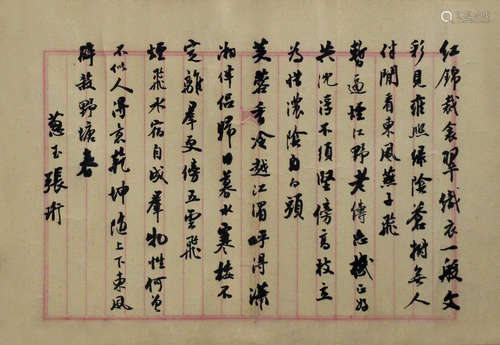 紅錦裁衾翠織衣一般文
彩見雍熙緑陰蒼樹無人
付閒看東風燕子飛
暫過煙江野老忘機正好
共沈浮不須堅傍高枝立
為惜濃陰自白頭
芙蓉香冷越江湄呼得瀟
湘伴侶歸日暮水寒棲不
定離羣更傍五雲飛
煙飛水宿自成羣物性何曾
不似人得意乾坤隨上下東風
醉殺野塘春
蔥玉張珩